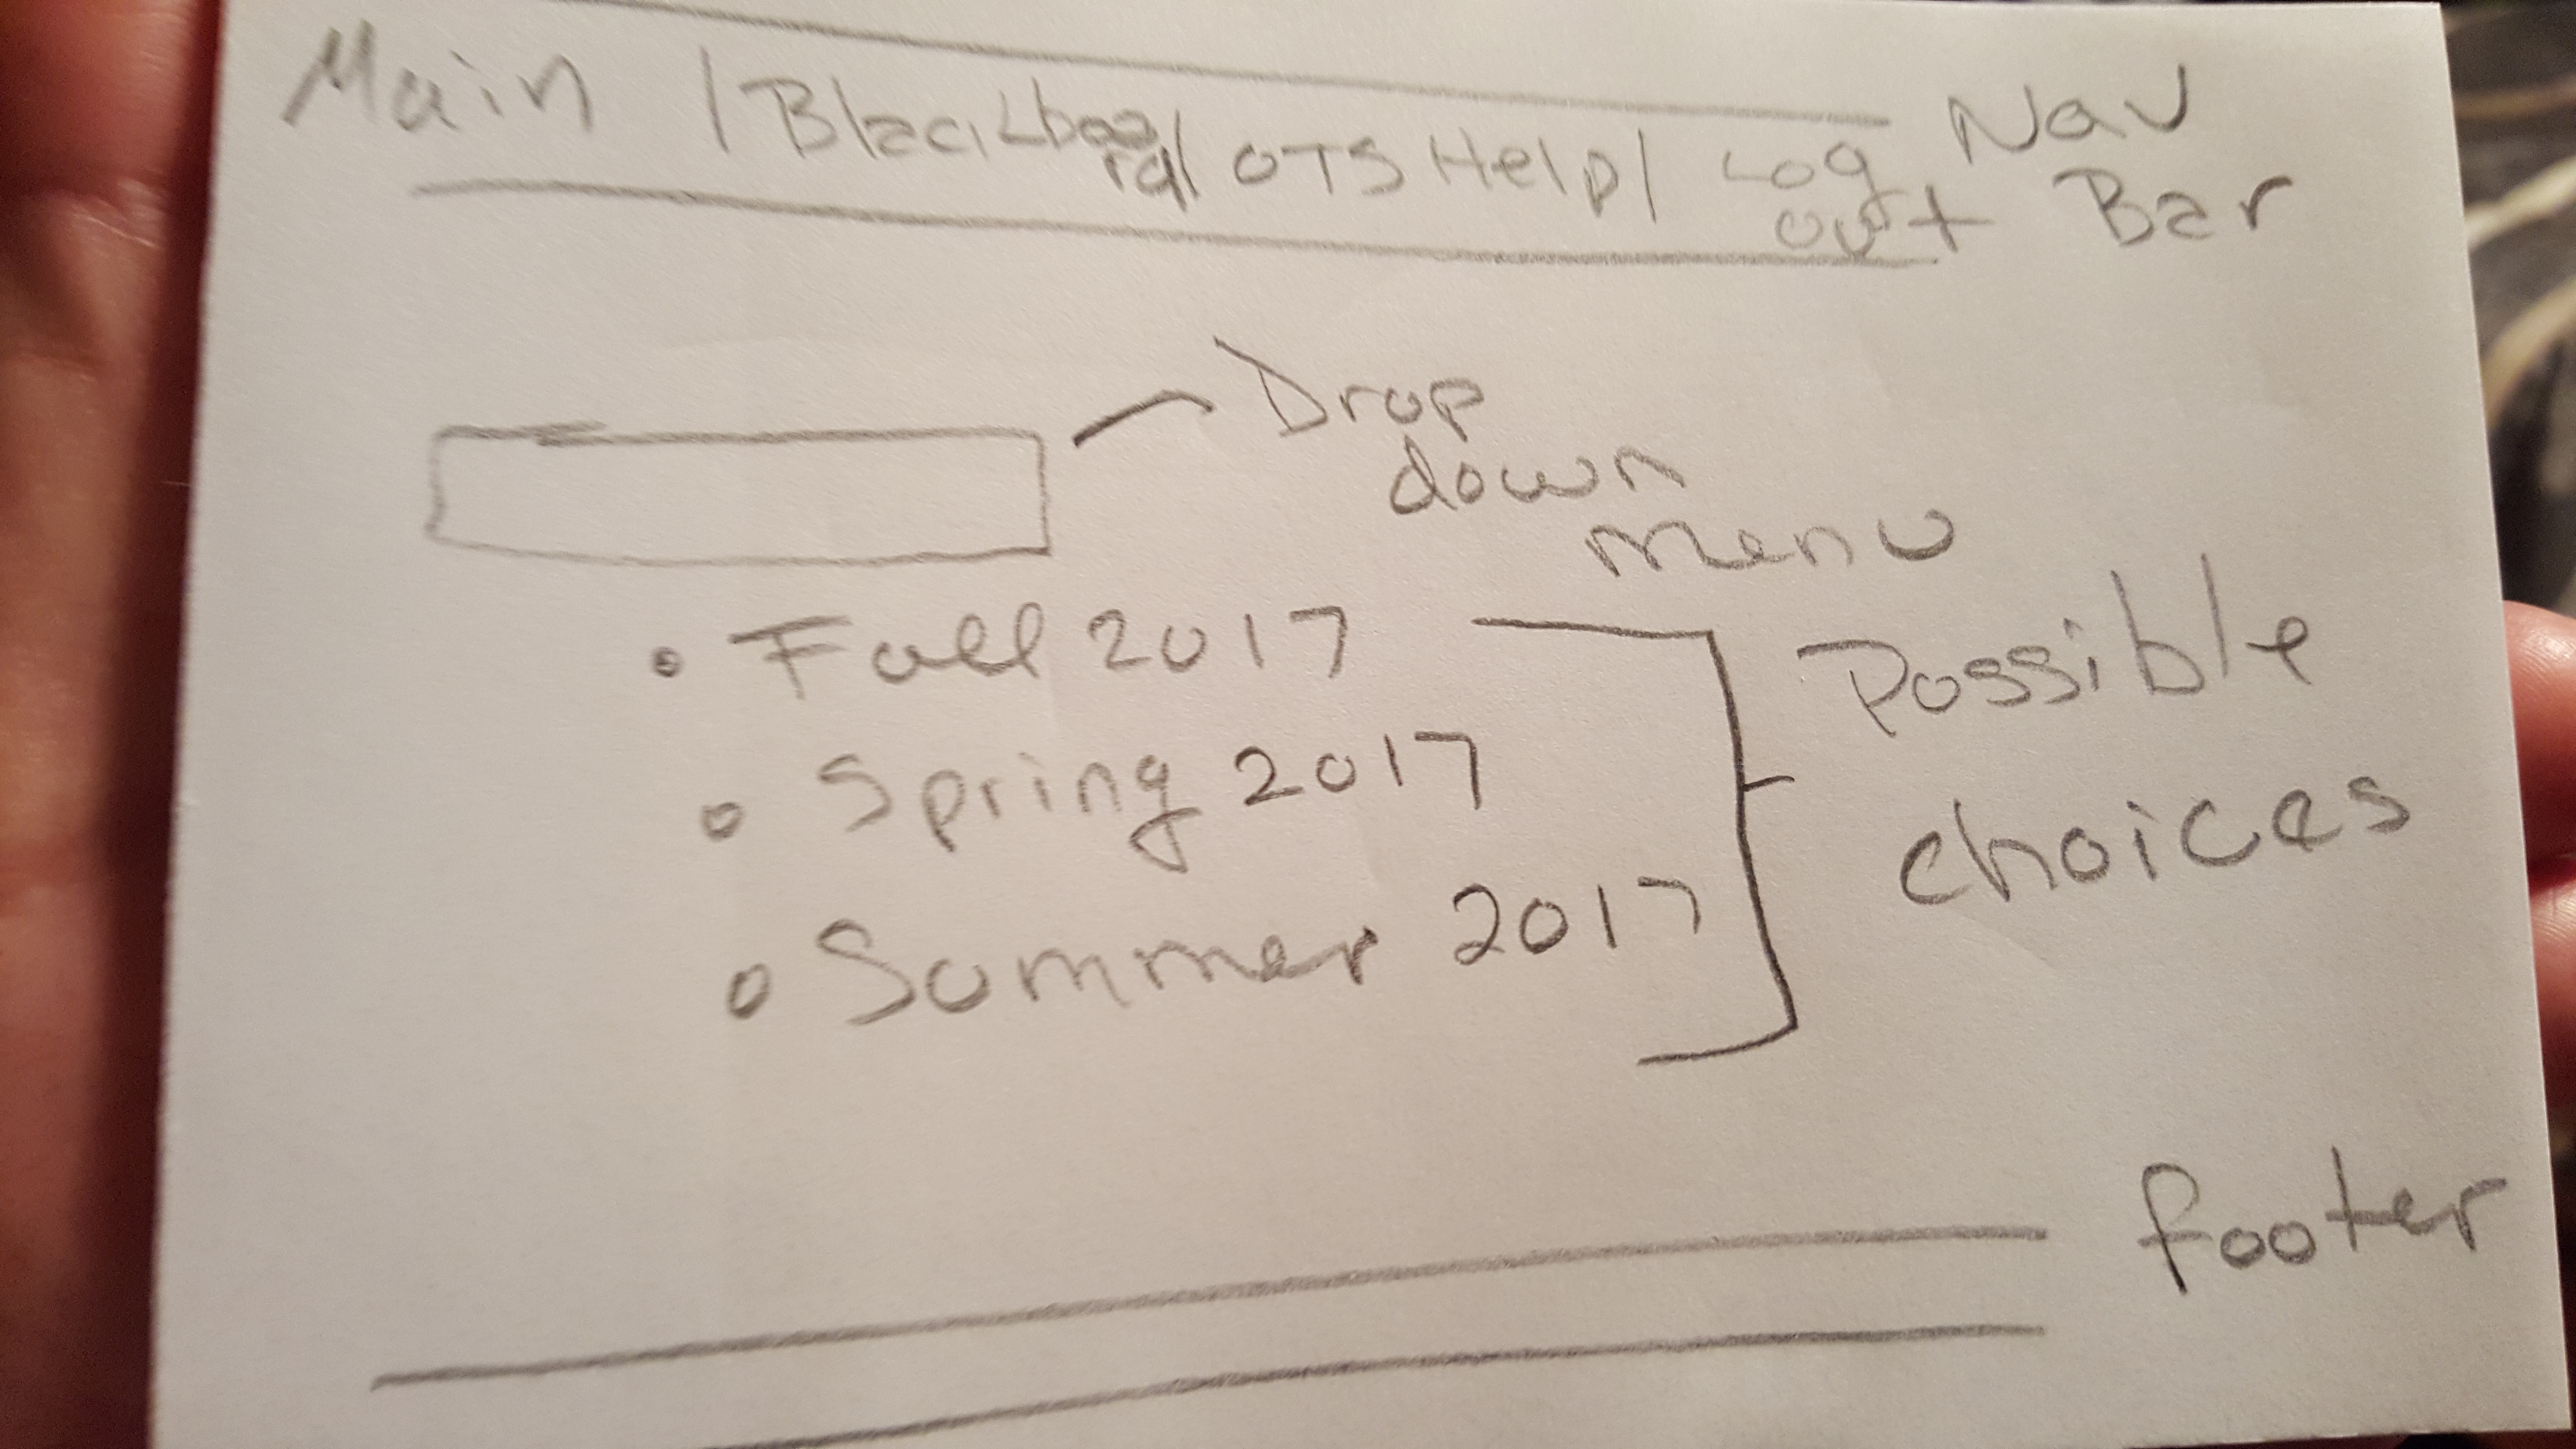 Main | Blackboard | OTS Help | Log out
Nav
Bar
Drop
down
menu
• Fall 2017
• Spring 2017
• Summer 2017
Possible
choices
footer